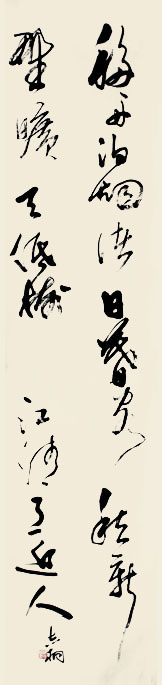 移舟泊烟渚日暮客愁新
野曠天低樹江清月近人